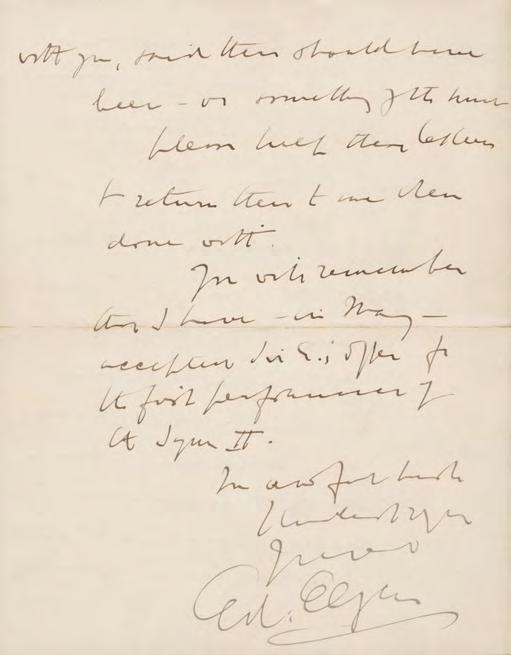 with you, said there should have
been – or something of the sort
please keep these letters
& return them to me when
done with.
You will remember
that I have – in May –
accepted Sir E.'s offer for
the first performance of
the Sym II.
In awful haste
Kindest rgds
Yrs
Ed. Elgar